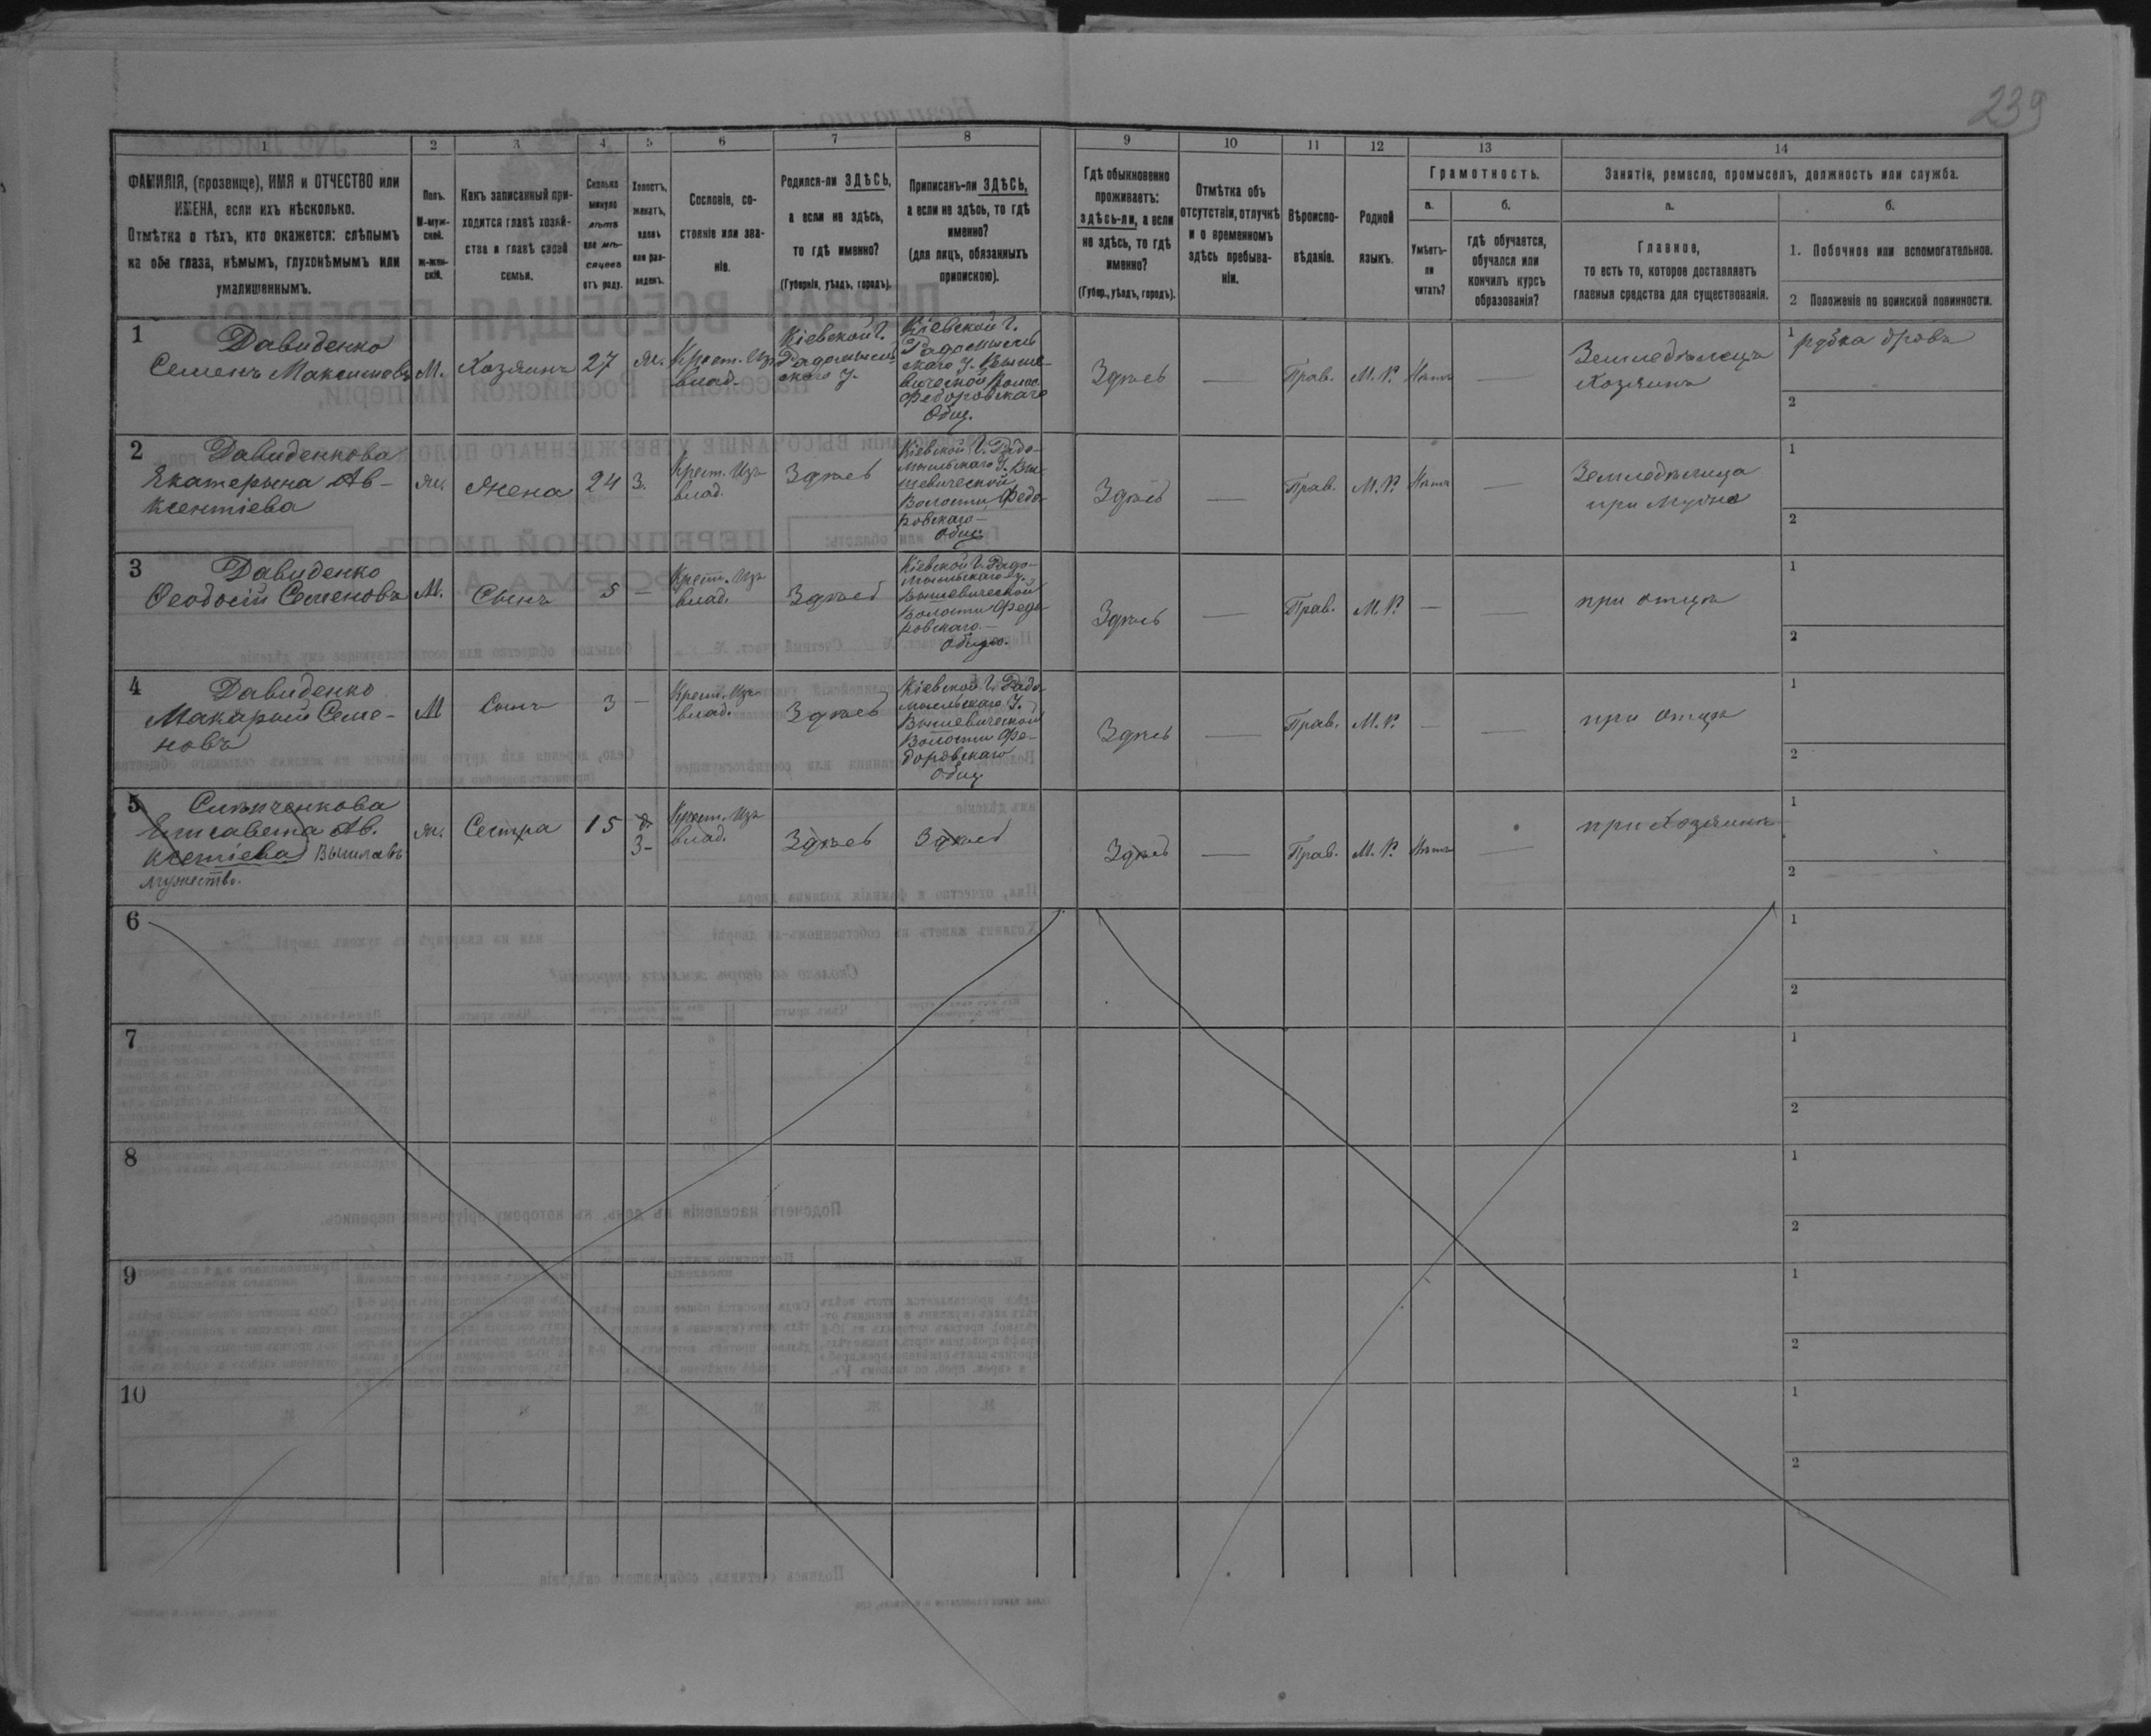 239
1 2 3 4 5 6 7 8 9 10 11 12 13 14
ФАМИЛІЯ, (прозвище), ИМЯ и ОТЧЕСТВО или
ИМЕНА, если ихъ нѣсколько.
Отмѣтка о тѣхъ, кто окажется: слѣпымъ
на оба глаза, нѣмымъ, глухонѣмымъ или
умалишеннымъ.
Полъ.
М-муж-
ской.
ж-жен-
скій.
Какъ записанный при-
ходится главѣ хозяй-
ства и главѣ своей
семьи.
Сколько
минуло
лѣтъ
или мѣ-
сяцевъ
отъ роду.
Холостъ,
женатъ,
вдовъ
или раз-
веденъ.
Сословіе, со-
стояніе или зва-
ніе.
Родился-ли ЗДѢСЬ,
а если не здѣсь,
то гдѣ именно?
(Губернія, уѣздъ, городъ).
Приписанъ-ли ЗДѢСЬ,
а если не здѣсь, то гдѣ
именно?
(для лицъ, обязанныхъ
припискою).
Гдѣ обыкновенно
проживаетъ:
здѣсь-ли, а если
не здѣсь, то гдѣ
именно?
(Губер., уѣздъ, городъ).
Отмѣтка объ
отсутствіи, отлучкѣ
и о временномъ
здѣсь пребыва-
ніи.
Вѣроиспо-
вѣданіе.
Родной
языкъ.
Грамотность.
а.
Умѣетъ-
ли
читать?
б.
гдѣ обучается,
обучался или
кончилъ курсъ
образованія?
Занятія, ремесло, промыселъ, должность или служба.
а.
Главное,
то есть то, которое доставляетъ
главныя средства для существованія.
б.
1. Побочное или вспомогательное.
2 Положеніе по воинской повинности.
1
Давиденко
Семенъ Максимовъ
М.
Хозяинъ
27
Ж.
Крест. Изъ
влад.
Кіевской г.
Радомысль-
скаго у.
Кіевской г.
Радомысль
скаго у. Выше-
вической Волос.
Федоровскаго
Общ.
Здѣсь
—
Прав.
М. Р.
Нѣтъ
—
Земледѣлецъ
Хозяинъ
1 рубка дровъ
2
2
Давиденкова
Екатерына Ав-
ксентіева
Ж.
Жена
24
З.
Крест. Изъ
влад.
Здѣсь
Кіевской г. Радо-
мысльскаго у. Вы-
шевической
Волости, Федо-
ровскаго
Общ.
Здѣсь
—
Прав.
М. Р.
Нѣтъ
—
Земледѣлица
при Мужѣ
1
2
3
Давиденко
Феодосій Семеновъ
М.
Сынъ
5
—
Крест. Изъ
влад.
Здѣсь
Кіевской г. Радо-
мысльскаго у.
Вышевической
Волости Федо-
ровскаго
Общес.
Здѣсь
—
Прав.
М. Р.
—
—
при отцѣ
1
2
4
Давиденко
Макарый Семе-
новъ
М
Сынъ
3
—
Крест. Изъ
влад.
Здѣсь
Кіевской г. Радо-
мысльскаго у.
Вышевической
Волости Фе-
доровскаго
Общ
Здѣсь
—
Прав.
М. Р.
—
—
при отцѣ
1
2
5
Елисавета Ав.
ксетіева Вышла въ
мужество.
Ж.
Сестра
15
З-
Крест. Изъ
влад.
Здѣсь
Здѣсь
Здѣсь
—
Прав.
М. Р.
Нѣтъ
—
при Хозяинѣ
1
2
6
1
2
7
1
2
8
1
2
9
1
2
10
1
2